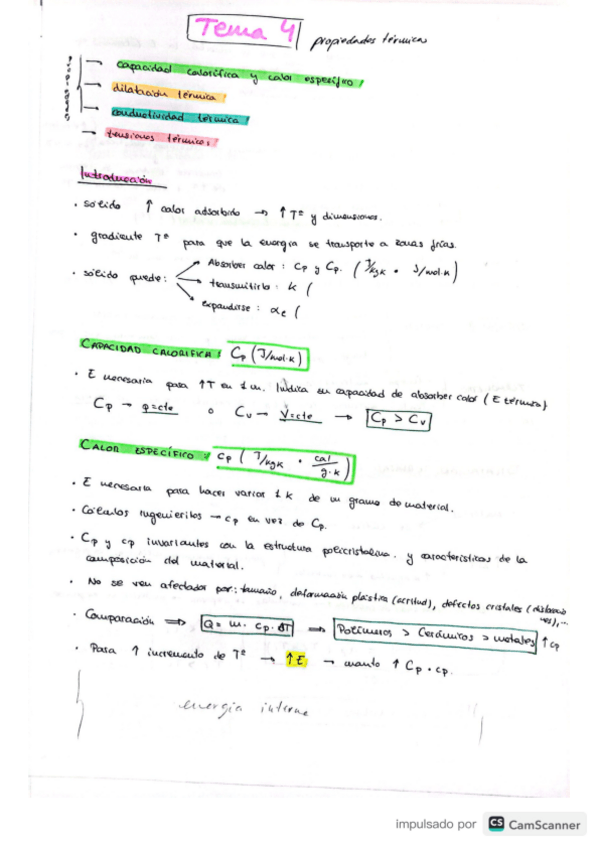 Tema 4 propiedades térmicas
→ capacidad calorífica y calor específico /
→ dilatación térmica /
→ conductividad térmica /
→ tensiones térmicas /
Introducción
· sólido ↑ calor adsorbido → ↑ Tª y dimensiones.
· gradiente Tª para que la energía se transporte a zonas frías.
· sólido puede:
Absorber calor : Cp y Cp. ( J/kgK · J/mol·K )
transmitirlo : K (
expandirse : αe (
CAPACIDAD CALORIFICA : Cp (J/mol·K)
· E necesaria para ↑T en 1 m. Indica su capacidad de absorber calor ( E térmica)
Cp → p=cte o Cv → V=cte → Cp > Cv
CALOR ESPECÍFICO : cp ( J/kgK · cal/g·K )
· E necesaria para hacer variar 1 k de un gramo de material.
· Cálculos ingenieriles → cp en vez de Cp.
· Cp y cp invariantes con la estructura policristalina. y características de la
composición del material.
· No se ven afectados por: tamaño, deformación plástica (acritud), defectos cristales
· Comparación ⟹ Q = m · cp · ΔT ⟹ Polímeros > Cerámicos > metales ↑ cp
· Para ↑ incremento de Tª → ↑E → cuanto ↑ Cp · cp.
energía interna
impulsado por CS CamScanner